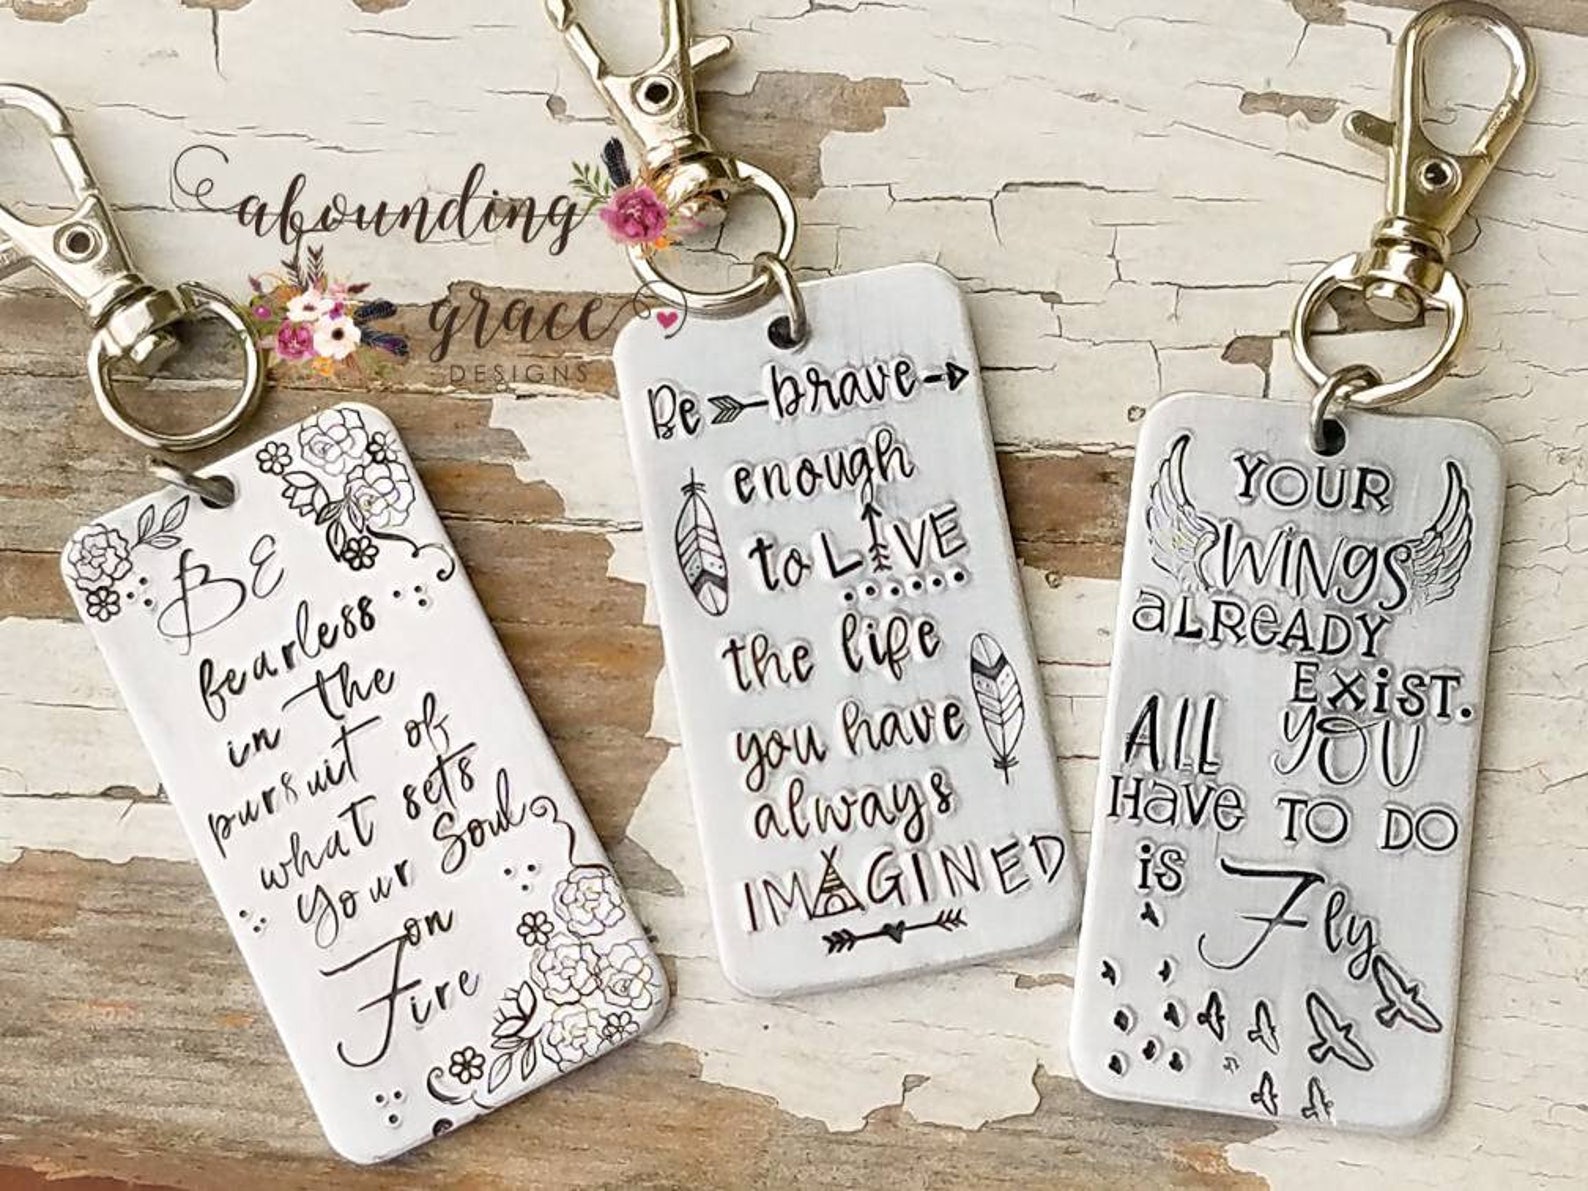 abounding
grace
DESIGNS
BE
fearless
in the
pursuit of
what sets
your Soul
on
Fire
Be brave
enough
to LIVE
the life
you have
always
IMAGINED
YOUR
WiNgS
aLReADY
EXiST.
All YOU
Have TO DO
is Fly